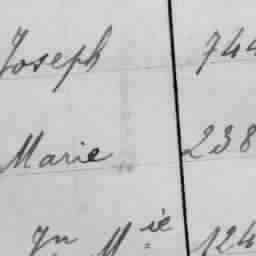 Joseph 744
Marie 238
Jn Mie 124